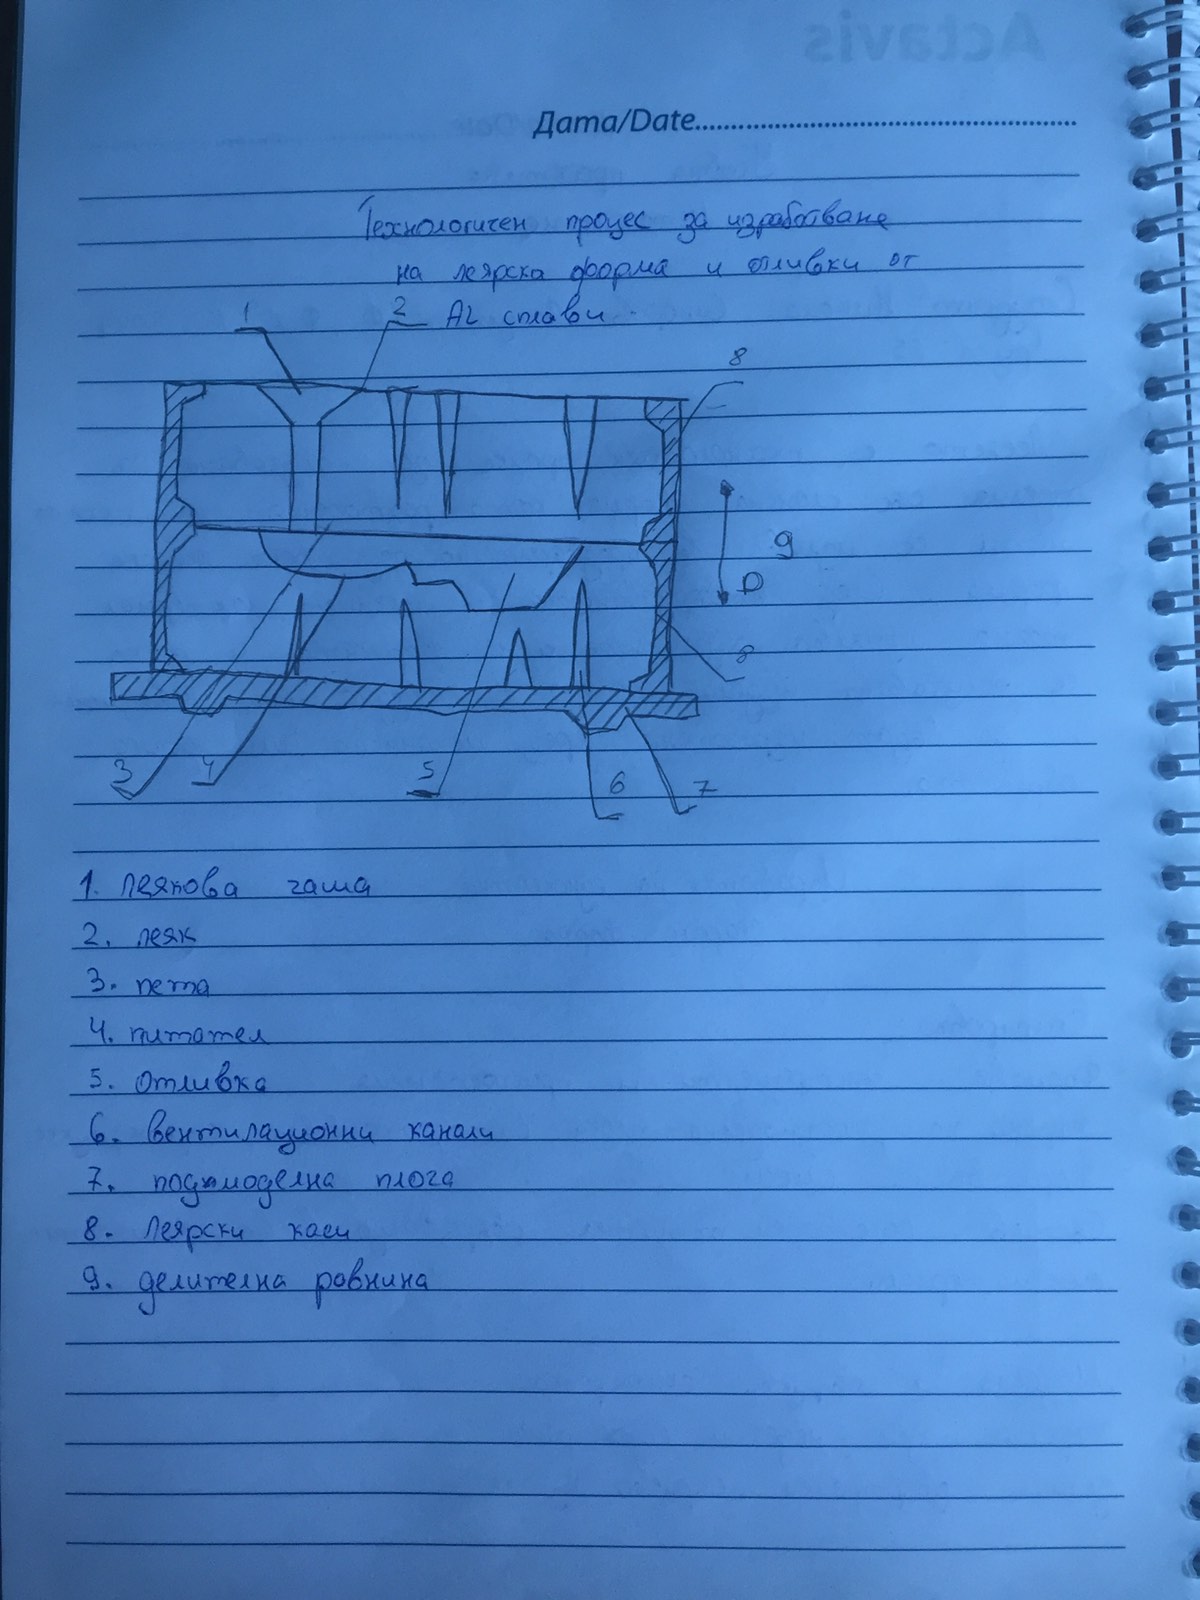 Actavis
Дата/Date
Технологичен процес за изработване
на леярска форма и отливки от
AL сплави.
1
2
8
9
D
8
3
4
5
6
7
1. леякова чаша
2. леяк
3. пета
4. питател
5. отливка
6. вентилационни канали
7. подмоделна плоча
8. леярски каси
9. делителна равнина